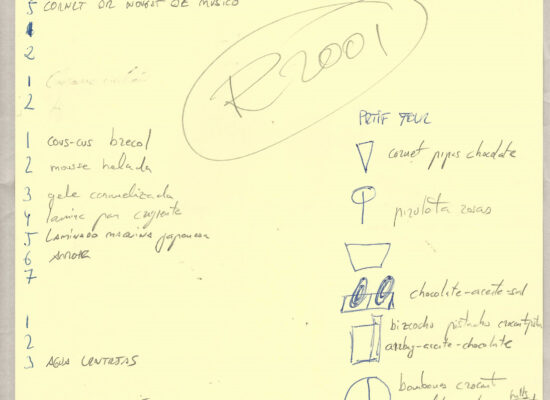 5 CORNET DE NOUGAT DE MUSICO
1
2
R2001
1
2
PETIT FOUR
1 cous-cus brecol
cornet pipas chocolate
2 mousse helada
3 gele caramelizada
4 lamina pan crujiente
piruleta rosas
5 LAMINADO MAQUINA japonesa
6 ARROZ
7
chocolate-aceite-sal
1
bizcocho pistacho
2
-aceite-chocolate
3 AGUA LENTEJAS
bombones crocant